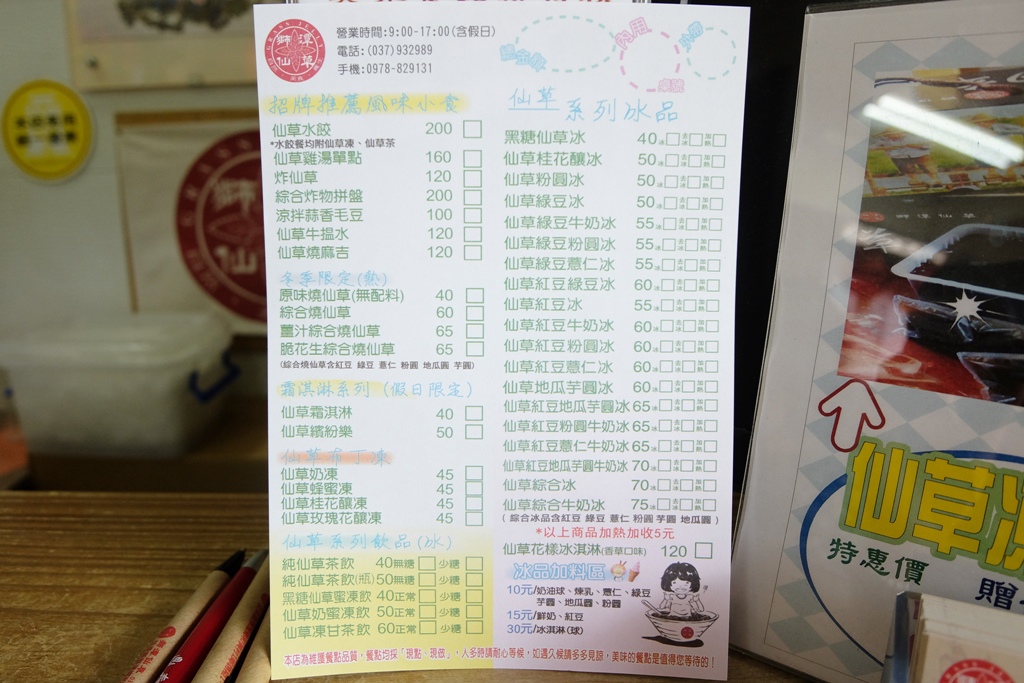 GRASS JELLY
獅潭仙草
營業時間:9:00-17:00(含假日)
電話:(037)932989
手機:0978-829131
總金額
內用
桌號
外帶
招牌推薦風味小食
仙草水餃 200
*水餃餐均附仙草凍、仙草茶
仙草雞湯單點 160
炸仙草 120
綜合炸物拼盤 200
涼拌蒜香毛豆 100
仙草牛揾水 120
仙草燒麻吉 120
冬季限定(熱)
原味燒仙草(無配料) 40
綜合燒仙草 60
薑汁綜合燒仙草 65
脆花生綜合燒仙草 65
(綜合燒仙草含紅豆 綠豆 薏仁 粉圓 地瓜圓 芋圓)
霜淇淋系列 (假日限定)
仙草霜淇淋 40
仙草繽紛樂 50
仙草布丁凍
仙草奶凍 45
仙草蜂蜜凍 45
仙草桂花釀凍 45
仙草玫瑰花釀凍 45
仙草系列飲品(冰)
純仙草茶飲 40無糖 少糖
純仙草茶飲(瓶)50無糖 少糖
黑糖仙草蜜凍飲 40正常 少糖
仙草奶蜜凍飲 50正常 少糖
仙草凍甘茶飲 60正常 少糖
仙草系列冰品
黑糖仙草冰 40冰 去冰 加熱
仙草桂花釀冰 50冰 去冰 加熱
仙草粉圓冰 50冰 去冰 加熱
仙草綠豆冰 50冰 去冰 加熱
仙草綠豆牛奶冰 55冰 去冰 加熱
仙草綠豆粉圓冰 55冰 去冰 加熱
仙草綠豆薏仁冰 55冰 去冰 加熱
仙草紅豆綠豆冰 60冰 去冰 加熱
仙草紅豆冰 55冰 去冰 加熱
仙草紅豆牛奶冰 60冰 去冰 加熱
仙草紅豆粉圓冰 60冰 去冰 加熱
仙草紅豆薏仁冰 60冰 去冰 加熱
仙草地瓜芋圓冰 60冰 去冰 加熱
仙草紅豆地瓜芋圓冰 65冰 去冰 加熱
仙草紅豆粉圓牛奶冰 65冰 去冰 加熱
仙草紅豆薏仁牛奶冰 65冰 去冰 加熱
仙草紅豆地瓜芋圓牛奶冰 70冰 去冰 加熱
仙草綜合冰 70冰 去冰 加熱
仙草綜合牛奶冰 75冰 去冰 加熱
( 綜合冰品含紅豆 綠豆 薏仁 粉圓 芋圓 地瓜圓 )
*以上商品加熱加收5元
仙草花樣冰淇淋(香草口味) 120
冰品加料區
10元/奶油球、煉乳、薏仁、綠豆
芋圓、地瓜圓、粉圓
15元/鮮奶、紅豆
30元/冰淇淋(球)
本店為維護餐點品質，餐點均採「現點、現做」，人多時請耐心等候，如遇久候請多多見諒，美味的餐點是值得您等待的！
仙草凍
特惠價
贈